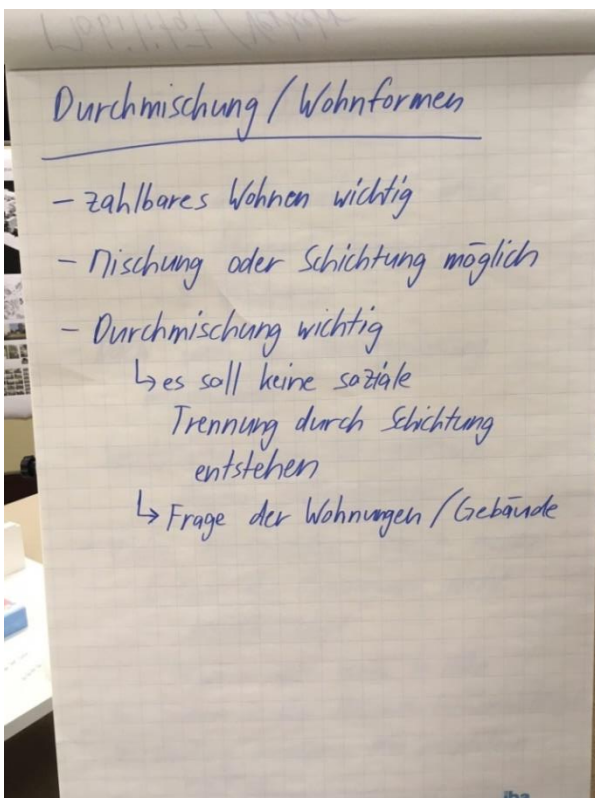 Durchmischung / Wohnformen
- zahlbares Wohnen wichtig
- Mischung oder Schichtung möglich
- Durchmischung wichtig
↳ es soll keine soziale
Trennung durch Schichtung
entstehen
↳ Frage der Wohnungen / Gebäude
iba